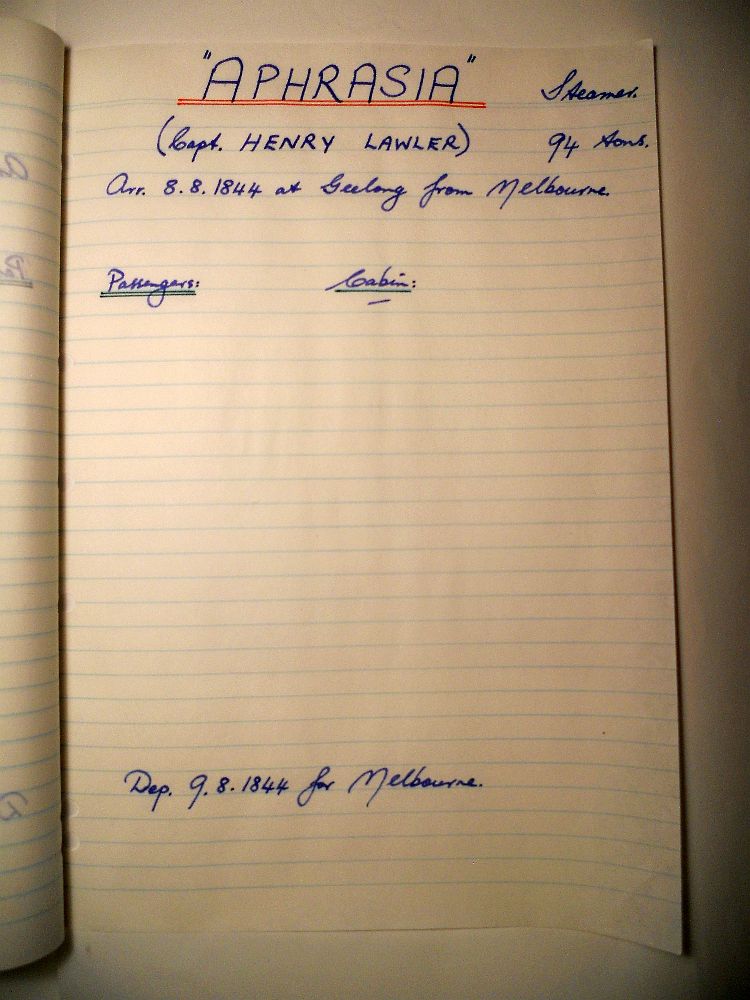 "APHRASIA" Steamer.
(Capt. HENRY LAWLER) 94 tons.
Arr. 8.8.1844 at Geelong from Melbourne.
Passengers: Cabin:
Dep. 9.8.1844 for Melbourne.